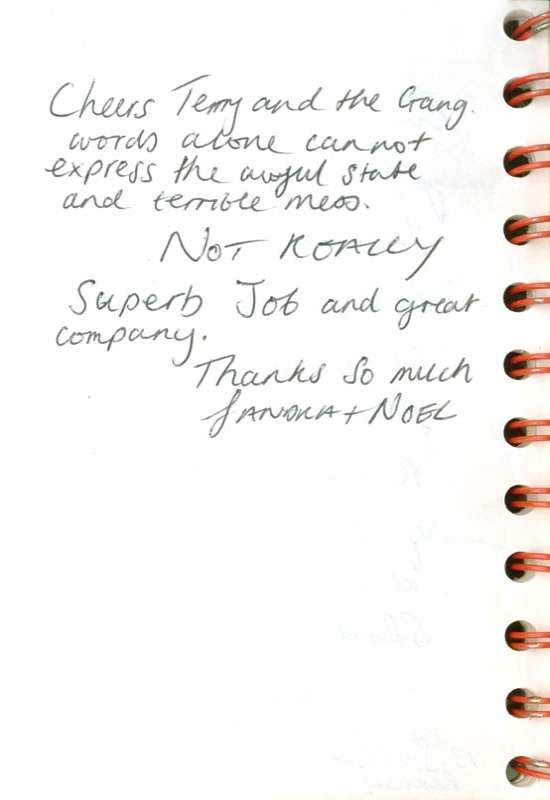 Cheers Terry and the Gang.
words alone cannot
express the awful state
and terrible mess.
NOT REALLY
Superb Job and great
company.
Thanks so much
SANDRA + NOEL